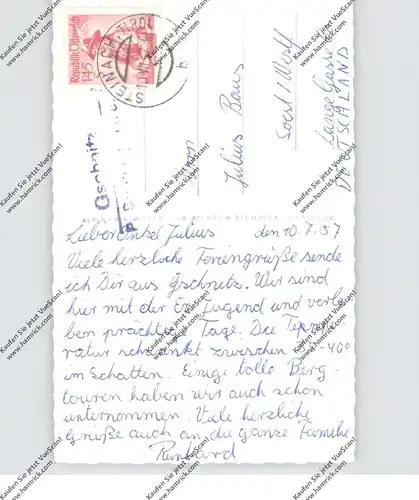 Republik Österreich
1.45
STEINACH TIROL
Gschnitz
Julius
Soest / Westf
Lange Gasse
DEUTSCHLAND
Lieber Onkel Julius den 10.7.57
Viele herzliche Feriengrüße sende
ich Dir aus Gschnitz. Wir sind
hier mit der Ev. Jugend und verle
ben prächtige Tage. Die Tempe
ratur schwankt zwischen - 40°
im Schatten. Einige tolle Berg-
touren haben wir auch schon
unternommen. Viele herzliche
Grüße auch an die ganze Familie
Reinhard
Kaufen Sie jetzt VueScan!
www.hamrick.com